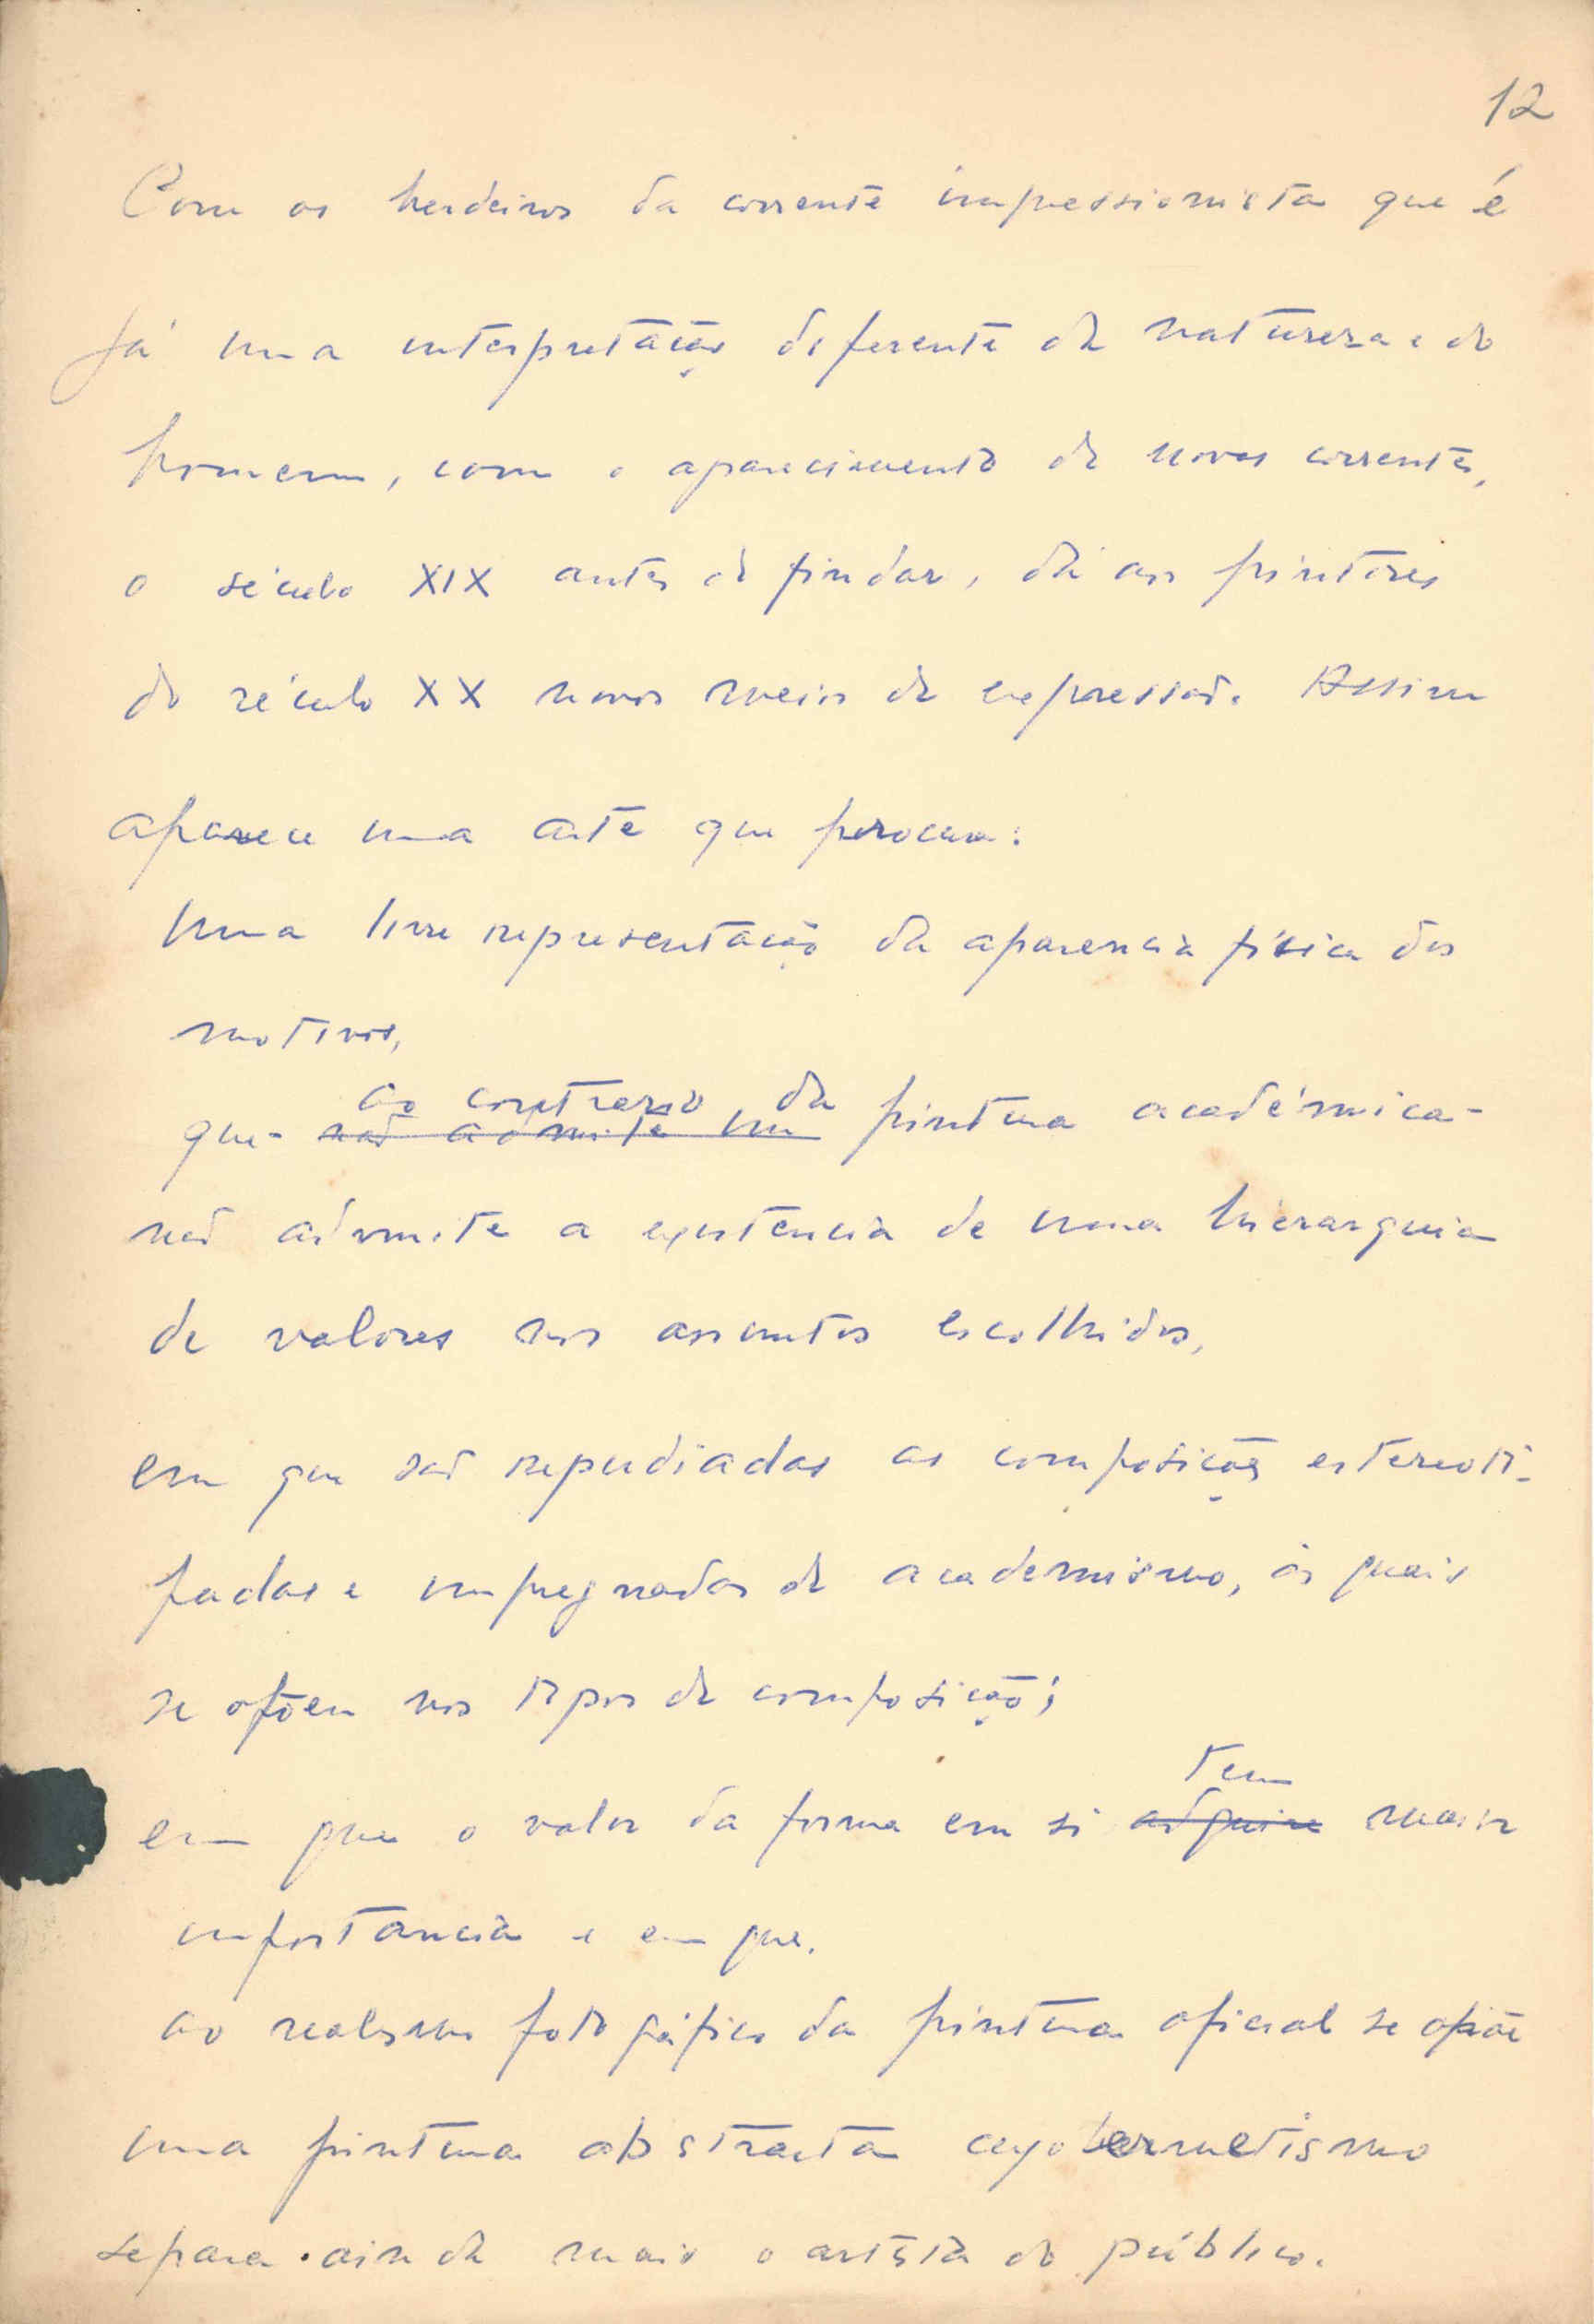 12
Com os herdeiros da corrente impressionista que é
já uma interpretação diferente da natureza e do
homem, com o aparecimento de novas correntes,
o século XIX antes de findar, dá aos pintores
do século XX novos meios de expressão. Assim
aparece uma arte que procura:
Uma livre representação da aparencia física dos
motivos,
ao contrario da
que - não admite um pintura académica -
não admite a existencia de uma hierarquia
de valores nos assuntos escolhidos,
em que são repudiadas as composições estereoti-
padas e impregnadas de academismo, às quais
se opõem nos tipos de composição;
tem
em que o valor da forma em si adquire maior
importancia e em que.
ao realismo fotográfico da pintura oficial se opõe
uma pintura abstracta cujo hermetismo
separa ainda mais o artista do público.